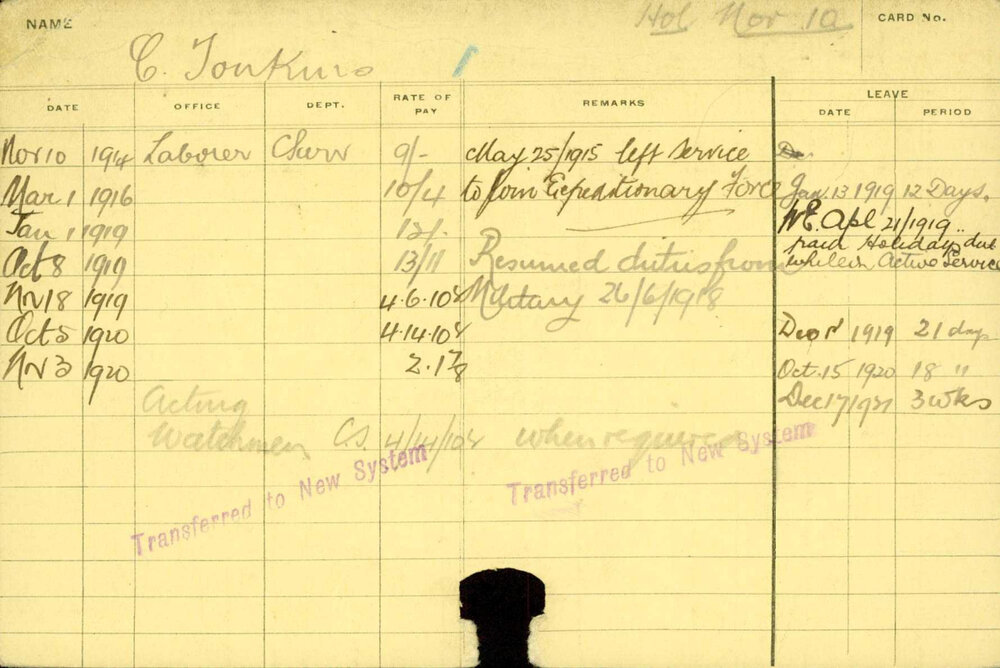 NAME
Hol Nor 10
CARD No.
C. Tonkins
DATE OFFICE DEPT. RATE OF PAY REMARKS LEAVE
DATE PERIOD
Nov 10 1914 Laborer C Surv 9/- May 25/1915 left Service
Mar 1 1916 10/4 to join Expeditionary Force Jan 13 1919 12 Days.
Jan 1 1919 12/- W.E. Apl 21/1919
paid Holidays due
Oct 8 1919 13/11 Resumed duties from whilein Active Service
Nv 18 1919 4.6.10 Military 26/6/1918
Oct 5 1920 4.14.10 1919 21 days
Nv 3 1920 2.17 Oct. 15 1920 18 "
Acting Dec 17/1921 3 wks
Watchmen CS 4/14/10 when required
Transferred to New System
Transferred to New System